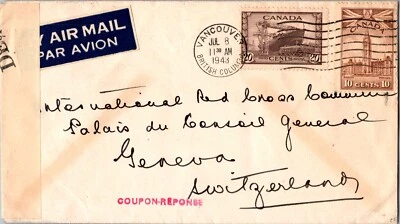 Y AIR MAIL
PAR AVION
VANCOUVER
JUL 8
11 30 AM
1943
BRITISH COLUMBIA
CANADA
20 CENTS 20
CANADA
10 CENTS 10
International Red Cross Committee
Palais du Conseil General
Geneva
Switzerland
COUPON-RÉPONSE